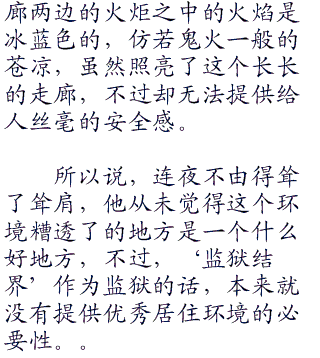 廊两边的火炬之中的火焰是
冰蓝色的，仿若鬼火一般的
苍凉，虽然照亮了这个长长
的走廊，不过却无法提供给
人丝毫的安全感。
所以说，连夜不由得耸
了耸肩，他从未觉得这个环
境糟透了的地方是一个什么
好地方，不过，‘监狱结
界’作为监狱的话，本来就
没有提供优秀居住环境的必
要性。。